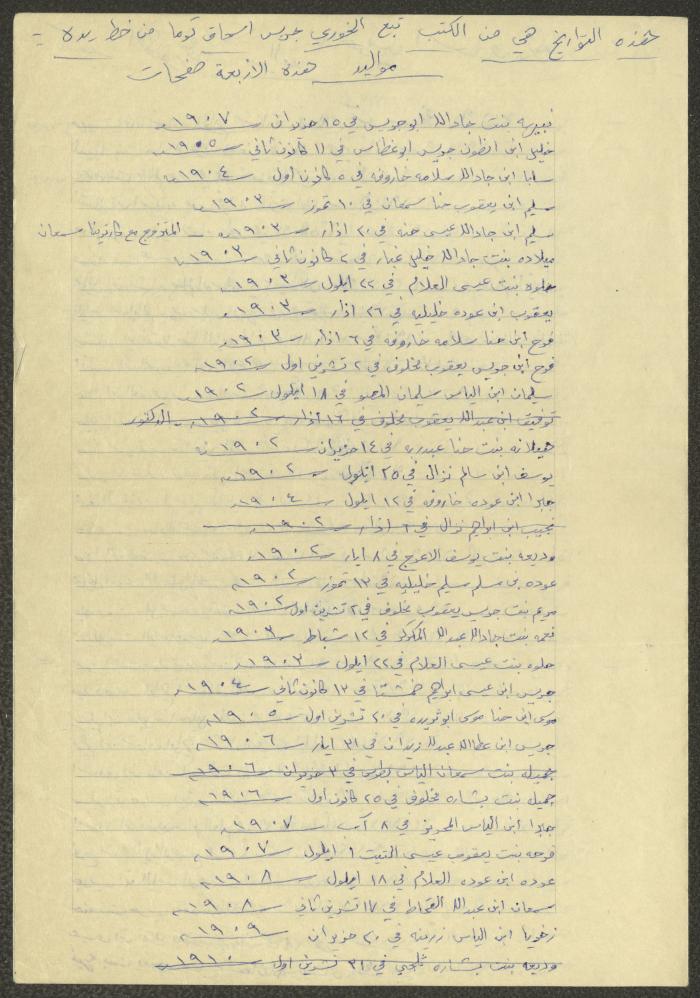 هذه التواريخ هي من الكتب تبع الخوري جريس اسحاق توما من خط يده =
مواليد هذه الاربعة صفحات
نبيهه بنت جادالله ابو جريس في ١٥ حزيران ١٩٠٧
خليل ابن انطون جريس ابو غطاس في ١١ كانون ثاني ١٩٠٥
سابا ابن جادالله سلامه خاروفه في ٥ كانون اول ١٩٠٤
سليم ابن يعقوب حنا سمعان في ١٠ تموز ١٩٠٣
سليم ابن جادالله عيسى حنه في ٢٠ اذار ١٩٠٣ - المتزوج مع كاترينا سمعان
ميلاده بنت جادالله خليل غبار في ٢ كانون ثاني ١٩٠٣
حلوه بنت عيسى العلام في ٢٢ ايلول ١٩٠٣
يعقوب ابن عوده خليليه في ٢٦ اذار ١٩٠٣
فرح ابن حنا سلامه خاروفه في ٦ اذار ١٩٠٣
فرح ابن جريس يعقوب مخلوف في ٢ تشرين اول ١٩٠٢
سليمان ابن الياس سليمان في ١٨ ايلول ١٩٠٢
توفيق ابن عبدالله يعقوب مخلوف في ١٦ اذار ١٩٠٢ - الدكتور
هيلانه بنت حنا عبدربه في ١٤ حزيران ١٩٠٢
يوسف ابن سالم نزال في ٢٥ ايلول ١٩٠٢
جابرا ابن عوده خاروفه في ١٢ ايلول ١٩٠٤
نجيب ابن ابراهيم نزال في ٦ اذار ١٩٠٢
وديعه بنت يوسف الاعرج في ٨ ايار ١٩٠٢
عوده بن مسلم سليم خليليه في ١٣ تموز ١٩٠٢
مريم بنت جريس يعقوب مخلوف في ٢ تشرين اول ١٩٠٢
نعمه بنت جادالله عبدالله المكركر في ١٢ شباط ١٩٠٣
حلوه بنت عيسى العلام في ٢٢ ايلول ١٩٠٣
جريس ابن عيسى ابراهيم في ١٣ كانون ثاني ١٩٠٤
موسى ابن حنا موسى ابو ثريده في ٢٠ تشرين اول ١٩٠٥
جريس ابن عطاالله عبدالله زيدان في ٣١ ايار ١٩٠٦
جميله بنت سمعان الياس في ٣ حزيران ١٩٠٦
جميل بنت بشاره مخلوف في ٢٥ كانون اول ١٩٠٦
جابرا ابن الياس في ٨ آب ١٩٠٧
فرحه بنت يعقوب عيسى التيت ١ ايلول ١٩٠٧
عوده ابن عوده العلام في ١٨ ايلول ١٩٠٨
سمعان ابن عبدالله القماط في ١٧ تشرين ثاني ١٩٠٨
زخريا ابن الياس زرينه في ٢٠ حزيران ١٩٠٩
وديعه بنت بشاره ثلجي في ٣١ تشرين اول ١٩١٠